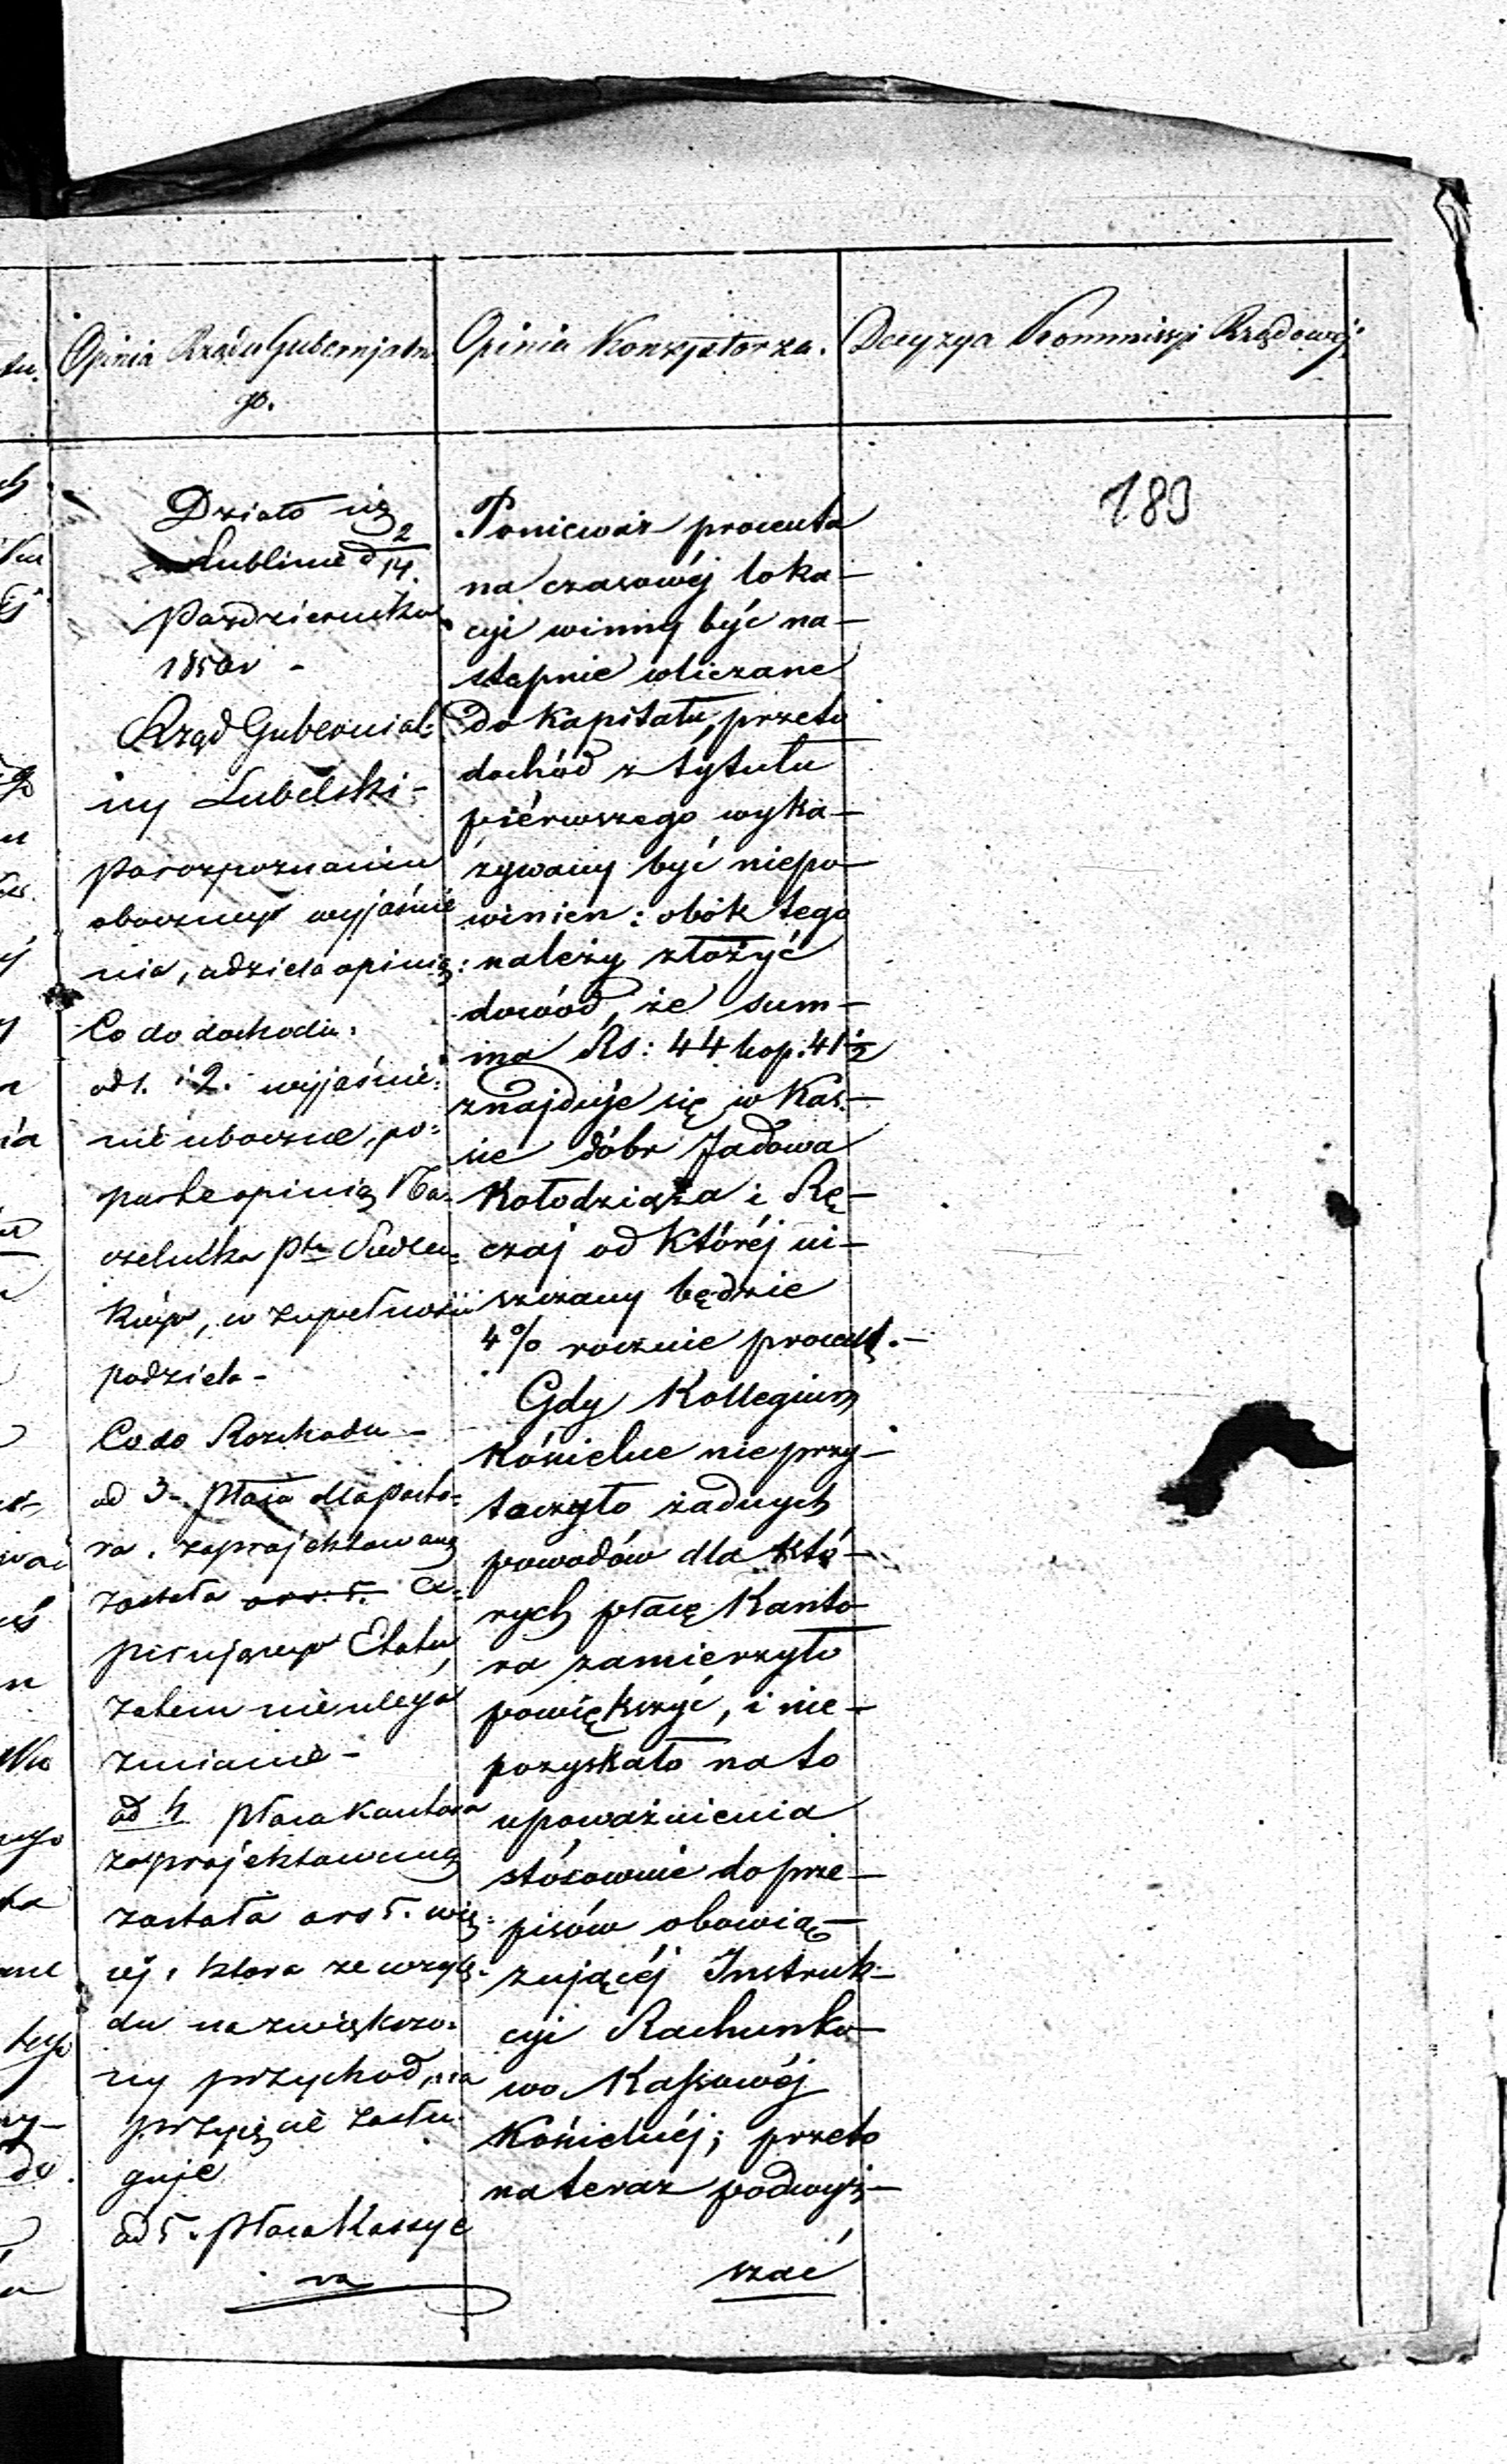 Opinia Rządu Gubernjalne
go.
Opinia Konsystorza.
Decyzya Kommissyi Rządowéj
183
Działo się
w Lublinie d 2/14.
Października
1850r -
Rząd Gubernial:
ny Lubelski -
Po rozpoznaniu
obocznych wyjaśnie
nia, udziela opinią:
Co do dochodu.
ad 1. i 2. wyjaśnie:
nie uboczne, po:
parte opinią Na:
czelnika Ptu
w zupełności
podziela -
Co do Rozchodu -
ad 3. Płaca dla Pasto:
ra, zaprojektowaną
została
Etatu,
zatem nieulega
zmianie -
ad 4 Płaca Kantora
zaprojektowaną
została o rs 5. wię:
céj, która ze wzglę:
du na zwiększo:
ny przychód, na
przyjęcie zasłu:
guje
ad 5. Płaca Kassye
ra
Ponieważ procenta
na czasowéj loka-
cyi winny być na-
stępnie wliczane
do Kapitału, przeto
dochód z tytułu
piérwszego wyka-
zywany być niepo-
winien: obók tego
należy złożyć
dowód, że sum-
ma Rs: 44 kop: 41½
znajduje się w Kas-
sie dóbr Jadowa
Kołodziąża i Rę-
czaj od któréj ui-
szczany będzie
4% rocznie procent.-
Gdy Kollegium
Kościelne nieprzy-
toczyło żadnych
powodów dla któ-
rych płacę Kanto-
ra zamierzyło
powiększyć, i nie-
pozyskało na to
upoważnienia
stósownie do prze-
pisów obowią-
zującéj Instruk-
cyi Rachunko-
wo Kassowéj
Kościelnéj; przeto
na teraz podwyż-
szać